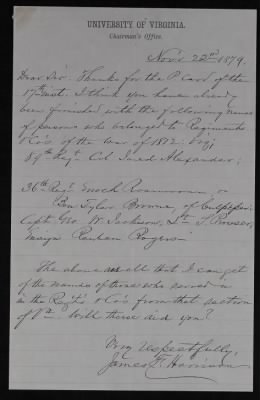 UNIVERSITY OF VIRGINIA.
Chairman's Office.
Nov. 22nd 1879.
Dear Sir: Thanks for the P. Card of the
17th inst. I think you have already
been furnished with the following names
of persons who belonged to Regiments
& Co's of the War of 1812: viz:
89th Reg. Col. Alexander;
36th Reg. Enoch
Tyler Browne, of Culpeper;
Capt. Geo. W. Jackson, Lt. T.
Ensign Reuben Rogers.
The above are all that I can get
of the names of those who served
in the Reg'ts & Co's from that section
of Va. Will these aid you?
Very respectfully,
James F. Harrison